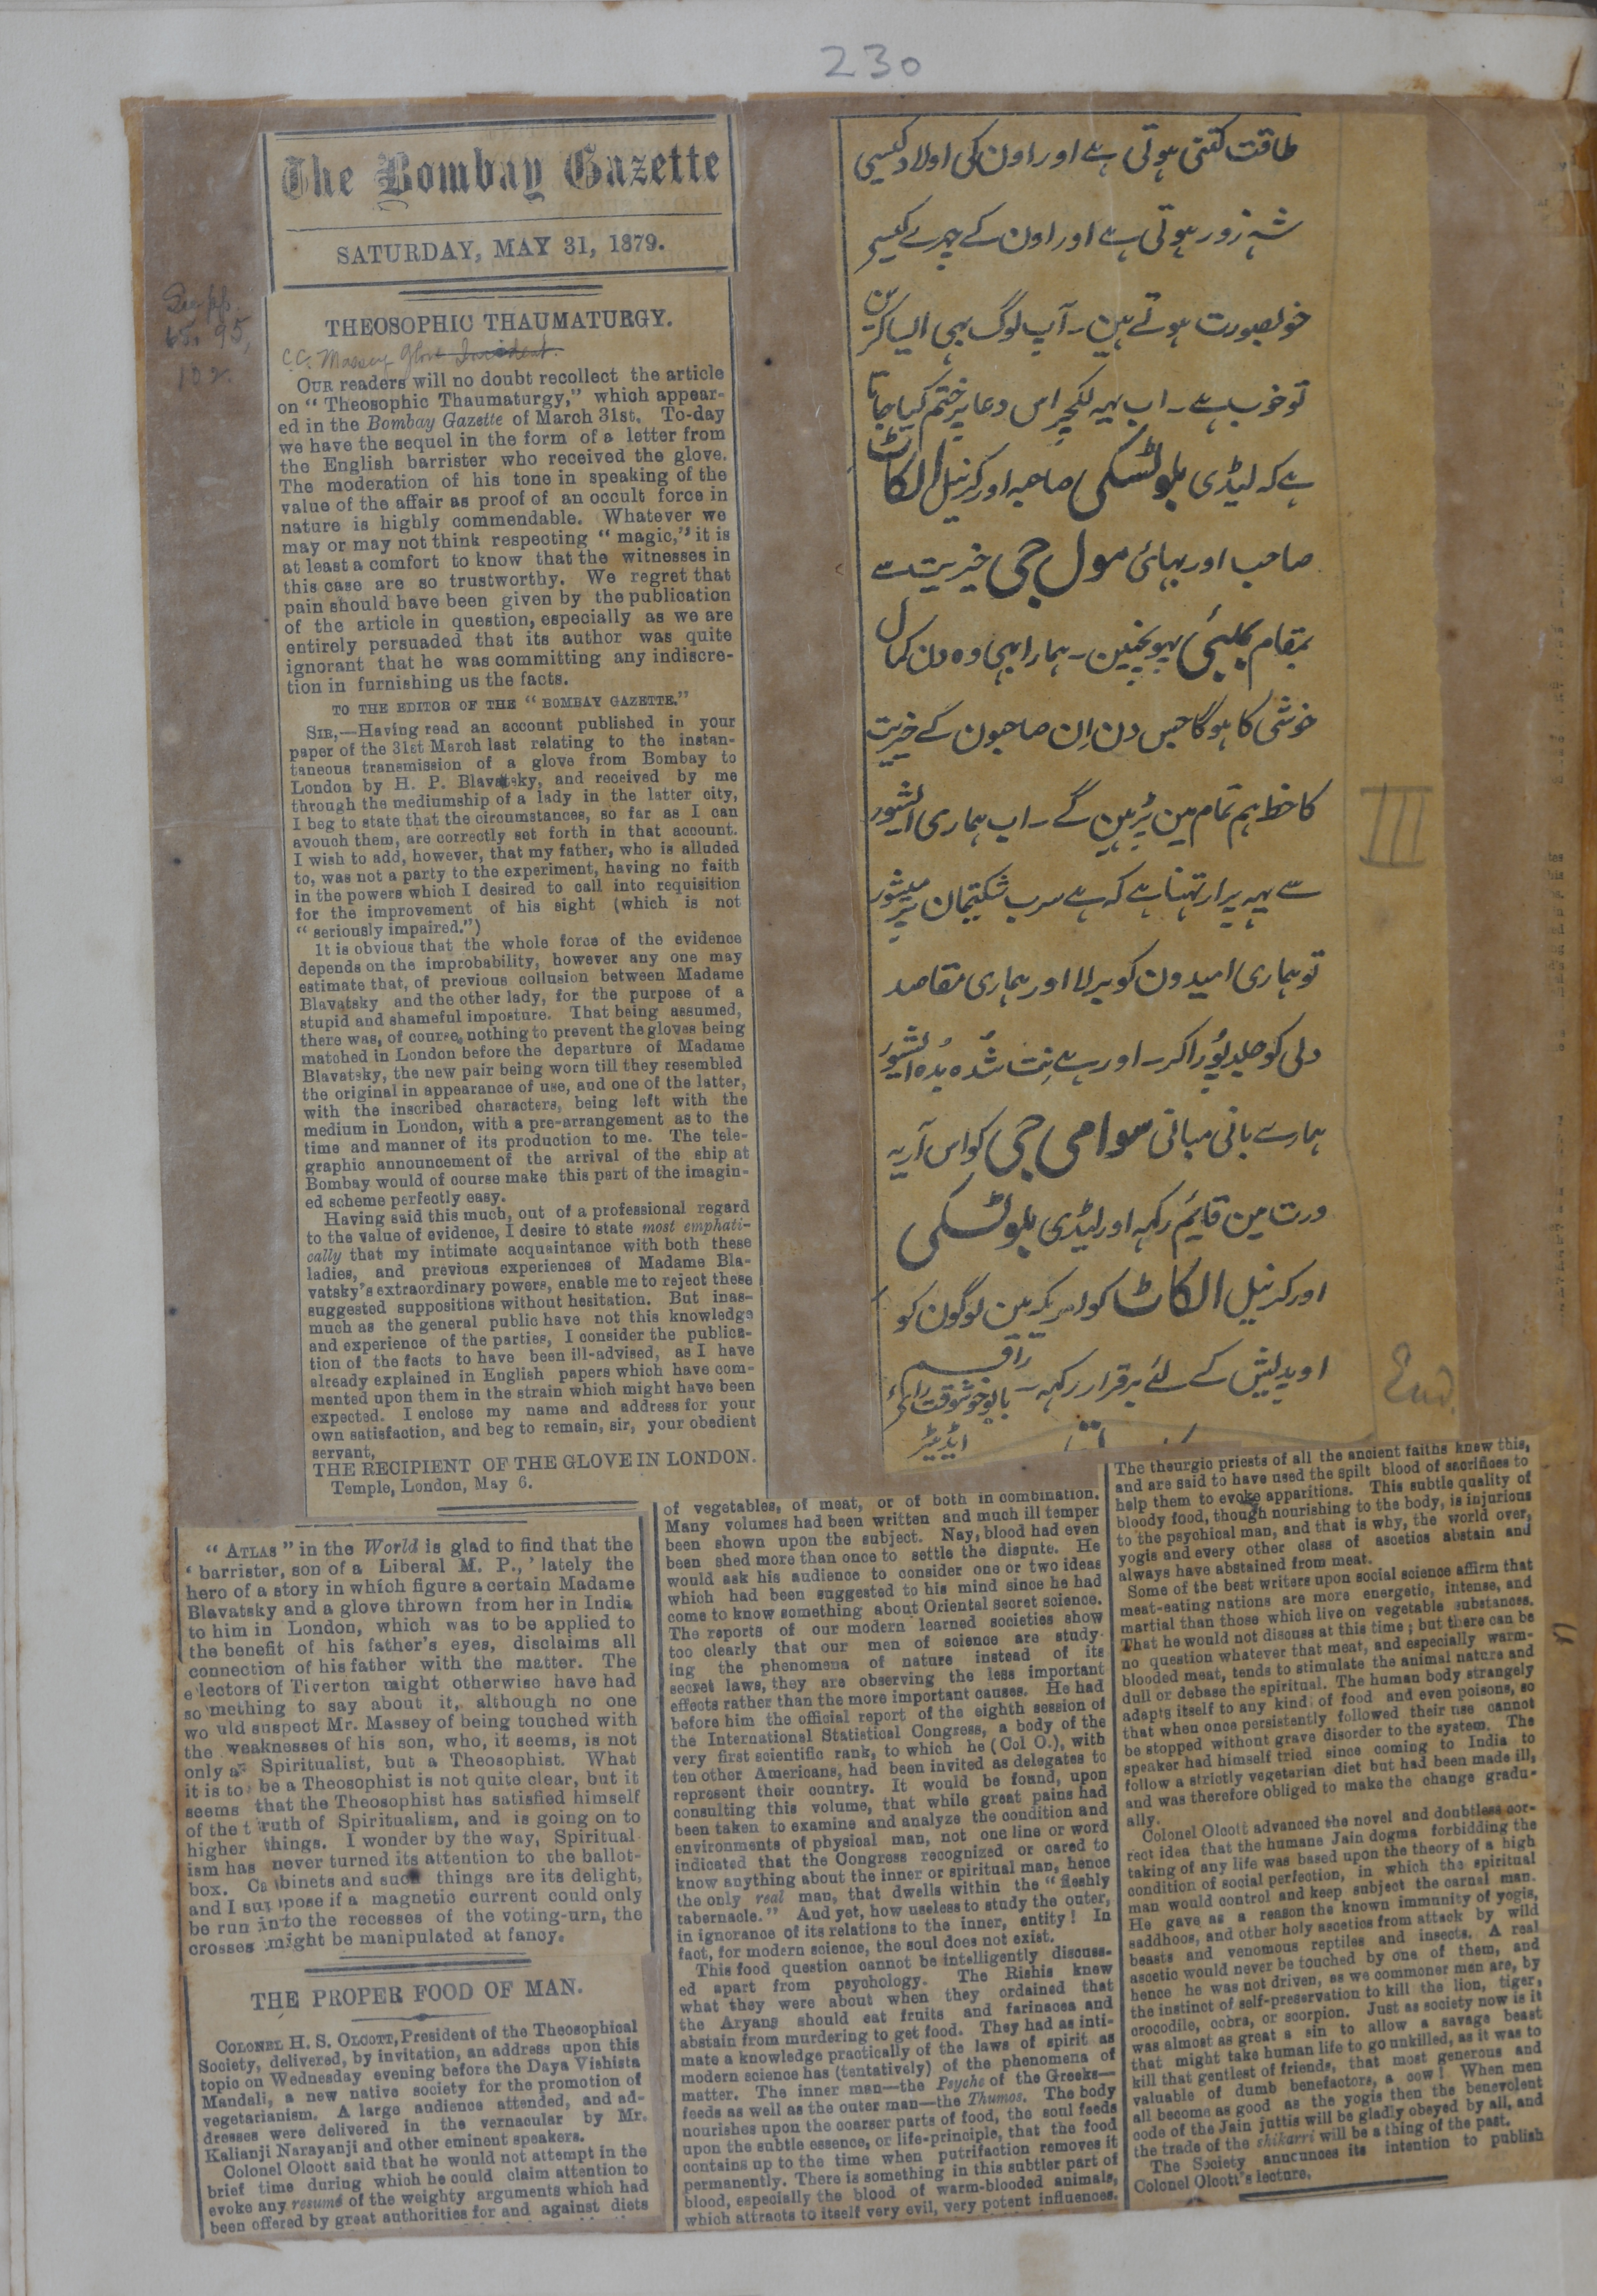 230
The Bombay Gazette
SATURDAY, MAY 31, 1879.
See pp.
65, 95,
102.
THEOSOPHIC THAUMATURGY.
C.C. Massey Glove Incident.
OUR readers will no doubt recollect the article
on "Theosophic Thaumaturgy," which appear-
ed in the Bombay Gazette of March 31st. To-day
we have the sequel in the form of a letter from
the English barrister who received the glove.
The moderation of his tone in speaking of the
value of the affair as proof of an occult force in
nature is highly commendable. Whatever we
may or may not think respecting "magic," it is
at least a comfort to know that the witnesses in
this case are so trustworthy. We regret that
pain should have been given by the publication
of the article in question, especially as we are
entirely persuaded that its author was quite
ignorant that he was committing any indiscre-
tion in furnishing us the facts.
TO THE EDITOR OF THE "BOMBAY GAZETTE."
SIR,—Having read an account published in your
paper of the 31st March last relating to the instan-
taneous transmission of a glove from Bombay to
London by H. P. Blavatsky, and received by me
through the mediumship of a lady in the latter city,
I beg to state that the circumstances, so far as I can
avouch them, are correctly set forth in that account.
I wish to add, however, that my father, who is alluded
to, was not a party to the experiment, having no faith
in the powers which I desired to call into requisition
for the improvement of his sight (which is not
"seriously impaired.")
It is obvious that the whole force of the evidence
depends on the improbability, however any one may
estimate that, of previous collusion between Madame
Blavatsky and the other lady, for the purpose of a
stupid and shameful imposture. That being assumed,
there was, of course, nothing to prevent the gloves being
matched in London before the departure of Madame
Blavatsky, the new pair being worn till they resembled
the original in appearance of use, and one of the latter,
with the inscribed characters, being left with the
medium in London, with a pre-arrangement as to the
time and manner of its production to me. The tele-
graphic announcement of the arrival of the ship at
Bombay would of course make this part of the imagin-
ed scheme perfectly easy.
Having said this much, out of a professional regard
to the value of evidence, I desire to state most emphati-
cally that my intimate acquaintance with both these
ladies, and previous experiences of Madame Bla-
vatsky's extraordinary powers, enable me to reject these
suggested suppositions without hesitation. But inas-
much as the general public have not this knowledge
and experience of the parties, I consider the publica-
tion of the facts to have been ill-advised, as I have
already explained in English papers which have com-
mented upon them in the strain which might have been
expected. I enclose my name and address for your
own satisfaction, and beg to remain, sir, your obedient
servant,
THE RECIPIENT OF THE GLOVE IN LONDON.
Temple, London, May 6.
طاقت کتنی ہوتی ہے اور اون کی اولاد کیسی
شہ زور ہوتی ہے اور اون کے چہرے کیسے
خوبصورت ہوتے ہین ۔ آپ لوگ بہی ایسا کرین
تو خوب ہے ۔ اب یہہ لکچر اس دعا پر ختم کیا جاتا
ہے کہ لیڈی بلوٹسکی صاحبہ اور کرنیل الکاٹ
صاحب اور بہائی مول جی خیریت سے
بمقام بمبئی پہونچین ۔ ہمارا بہی وہ دن کمال
خوشی کا ہوگا جس دن اِن صاحبون کے خیریت
کا خط ہم تمام مین پڑہین گے ۔ اب ہماری ایشور
سے یہہ پرارتہنا ہے کہ ہے سرب شکتیمان پرمیشور
تو ہماری امیدون کو برلا اور ہماری مقاصد
دلی کو جلد پُورا کر ۔ اور ہے نِت شُدہ بُدہ ایشور
ہمارے بانی مبانی سوامی جی کو اس آریہ
ورت مین قایٔم رکہہ اور لیڈی بلوٹسکی
اور کرنیل الکاٹ کو امریکہ مین لوگون کو
اوپدیش کے لئے برقرار رکہہ ۔ راقم
بابو خوشوقت رائے
ایڈیٹر
III
End.
"ATLAS" in the World is glad to find that the
'barrister, son of a Liberal M. P.,' lately the
hero of a story in which figure a certain Madame
Blavatsky and a glove thrown from her in India
to him in London, which was to be applied to
the benefit of his father's eyes, disclaims all
connection of his father with the matter. The
electors of Tiverton might otherwise have had
something to say about it, although no one
would suspect Mr. Massey of being touched with
the weaknesses of his son, who, it seems, is not
only a Spiritualist, but a Theosophist. What
it is to be a Theosophist is not quite clear, but it
seems that the Theosophist has satisfied himself
of the truth of Spiritualism, and is going on to
higher things. I wonder by the way, Spiritual-
ism has never turned its attention to the ballot-
box. Cabinets and such things are its delight,
and I suppose if a magnetic current could only
be run into the recesses of the voting-urn, the
crosses might be manipulated at fancy.
THE PROPER FOOD OF MAN.
COLONEL H. S. OLCOTT, President of the Theosophical
Society, delivered, by invitation, an address upon this
topic on Wednesday evening before the Daya Vishista
Mandali, a new native society for the promotion of
vegetarianism. A large audience attended, and ad-
dresses were delivered in the vernacular by Mr.
Kalianji Narayanji and other eminent speakers.
Colonel Olcott said that he would not attempt in the
brief time during which he could claim attention to
evoke any resumé of the weighty arguments which had
been offered by great authorities for and against diets
of vegetables, of meat, or of both in combination.
Many volumes had been written and much ill temper
been shown upon the subject. Nay, blood had even
been shed more than once to settle the dispute. He
would ask his audience to consider one or two ideas
which had been suggested to his mind since he had
come to know something about Oriental secret science.
The reports of our modern learned societies show
too clearly that our men of science are study-
ing the phenomena of nature instead of its
secret laws, they are observing the less important
effects rather than the more important causes. He had
before him the official report of the eighth session of
the International Statistical Congress, a body of the
very first scientific rank, to which he (Col O.), with
ten other Americans, had been invited as delegates to
represent their country. It would be found, upon
consulting this volume, that while great pains had
been taken to examine and analyze the condition and
environments of physical man, not one line or word
indicated that the Congress recognized or cared to
know anything about the inner or spiritual man, hence
the only real man, that dwells within the "fleshly
tabernacle." And yet, how useless to study the outer,
in ignorance of its relations to the inner, entity! In
fact, for modern science, the soul does not exist.
This food question cannot be intelligently discuss-
ed apart from psychology. The Rishis knew
what they were about when they ordained that
the Aryans should eat fruits and farinacea and
abstain from murdering to get food. They had as inti-
mate a knowledge practically of the laws of spirit as
modern science has (tentatively) of the phenomena of
matter. The inner man—the Psyche of the Greeks—
feeds as well as the outer man—the Thumos. The body
nourishes upon the coarser parts of food, the soul feeds
upon the subtle essence, or life-principle, that the food
contains up to the time when putrifaction removes it
permanently. There is something in this subtler part of
blood, especially the blood of warm-blooded animals,
which attracts to itself very evil, very potent influences.
The theurgic priests of all the ancient faiths knew this,
and are said to have used the spilt blood of sacrifices to
help them to evoke apparitions. This subtle quality of
bloody food, though nourishing to the body, is injurious
to the psychical man, and that is why, the world over,
yogis and every other class of ascetics abstain and
always have abstained from meat.
Some of the best writers upon social science affirm that
meat-eating nations are more energetic, intense, and
martial than those which live on vegetable substances.
That he would not discuss at this time; but there can be
no question whatever that meat, and especially warm-
blooded meat, tends to stimulate the animal nature and
dull or debase the spiritual. The human body strangely
adapts itself to any kind of food and even poisons, so
that when once persistently followed their use cannot
be stopped without grave disorder to the system. The
speaker had himself tried since coming to India to
follow a strictly vegetarian diet but had been made ill,
and was therefore obliged to make the change gradu-
ally.
Colonel Olcott advanced the novel and doubtless cor-
rect idea that the humane Jain dogma forbidding the
taking of any life was based upon the theory of a high
condition of social perfection, in which the spiritual
man would control and keep subject the carnal man.
He gave as a reason the known immunity of yogis,
saddhoos, and other holy ascetics from attack by wild
beasts and venomous reptiles and insects. A real
ascetic would never be touched by one of them, and
hence he was not driven, as we commoner men are, by
the instinct of self-preservation to kill the lion, tiger,
crocodile, cobra, or scorpion. Just as society now is it
was almost as great a sin to allow a savage beast
that might take human life to go unkilled, as it was to
kill that gentlest of friends, that most generous and
valuable of dumb benefactors, a cow! When men
all become as good as the yogis then the benevolent
code of the Jain juttis will be gladly obeyed by all, and
the trade of the shikarri will be a thing of the past.
The Society announces its intention to publish
Colonel Olcott's lecture.